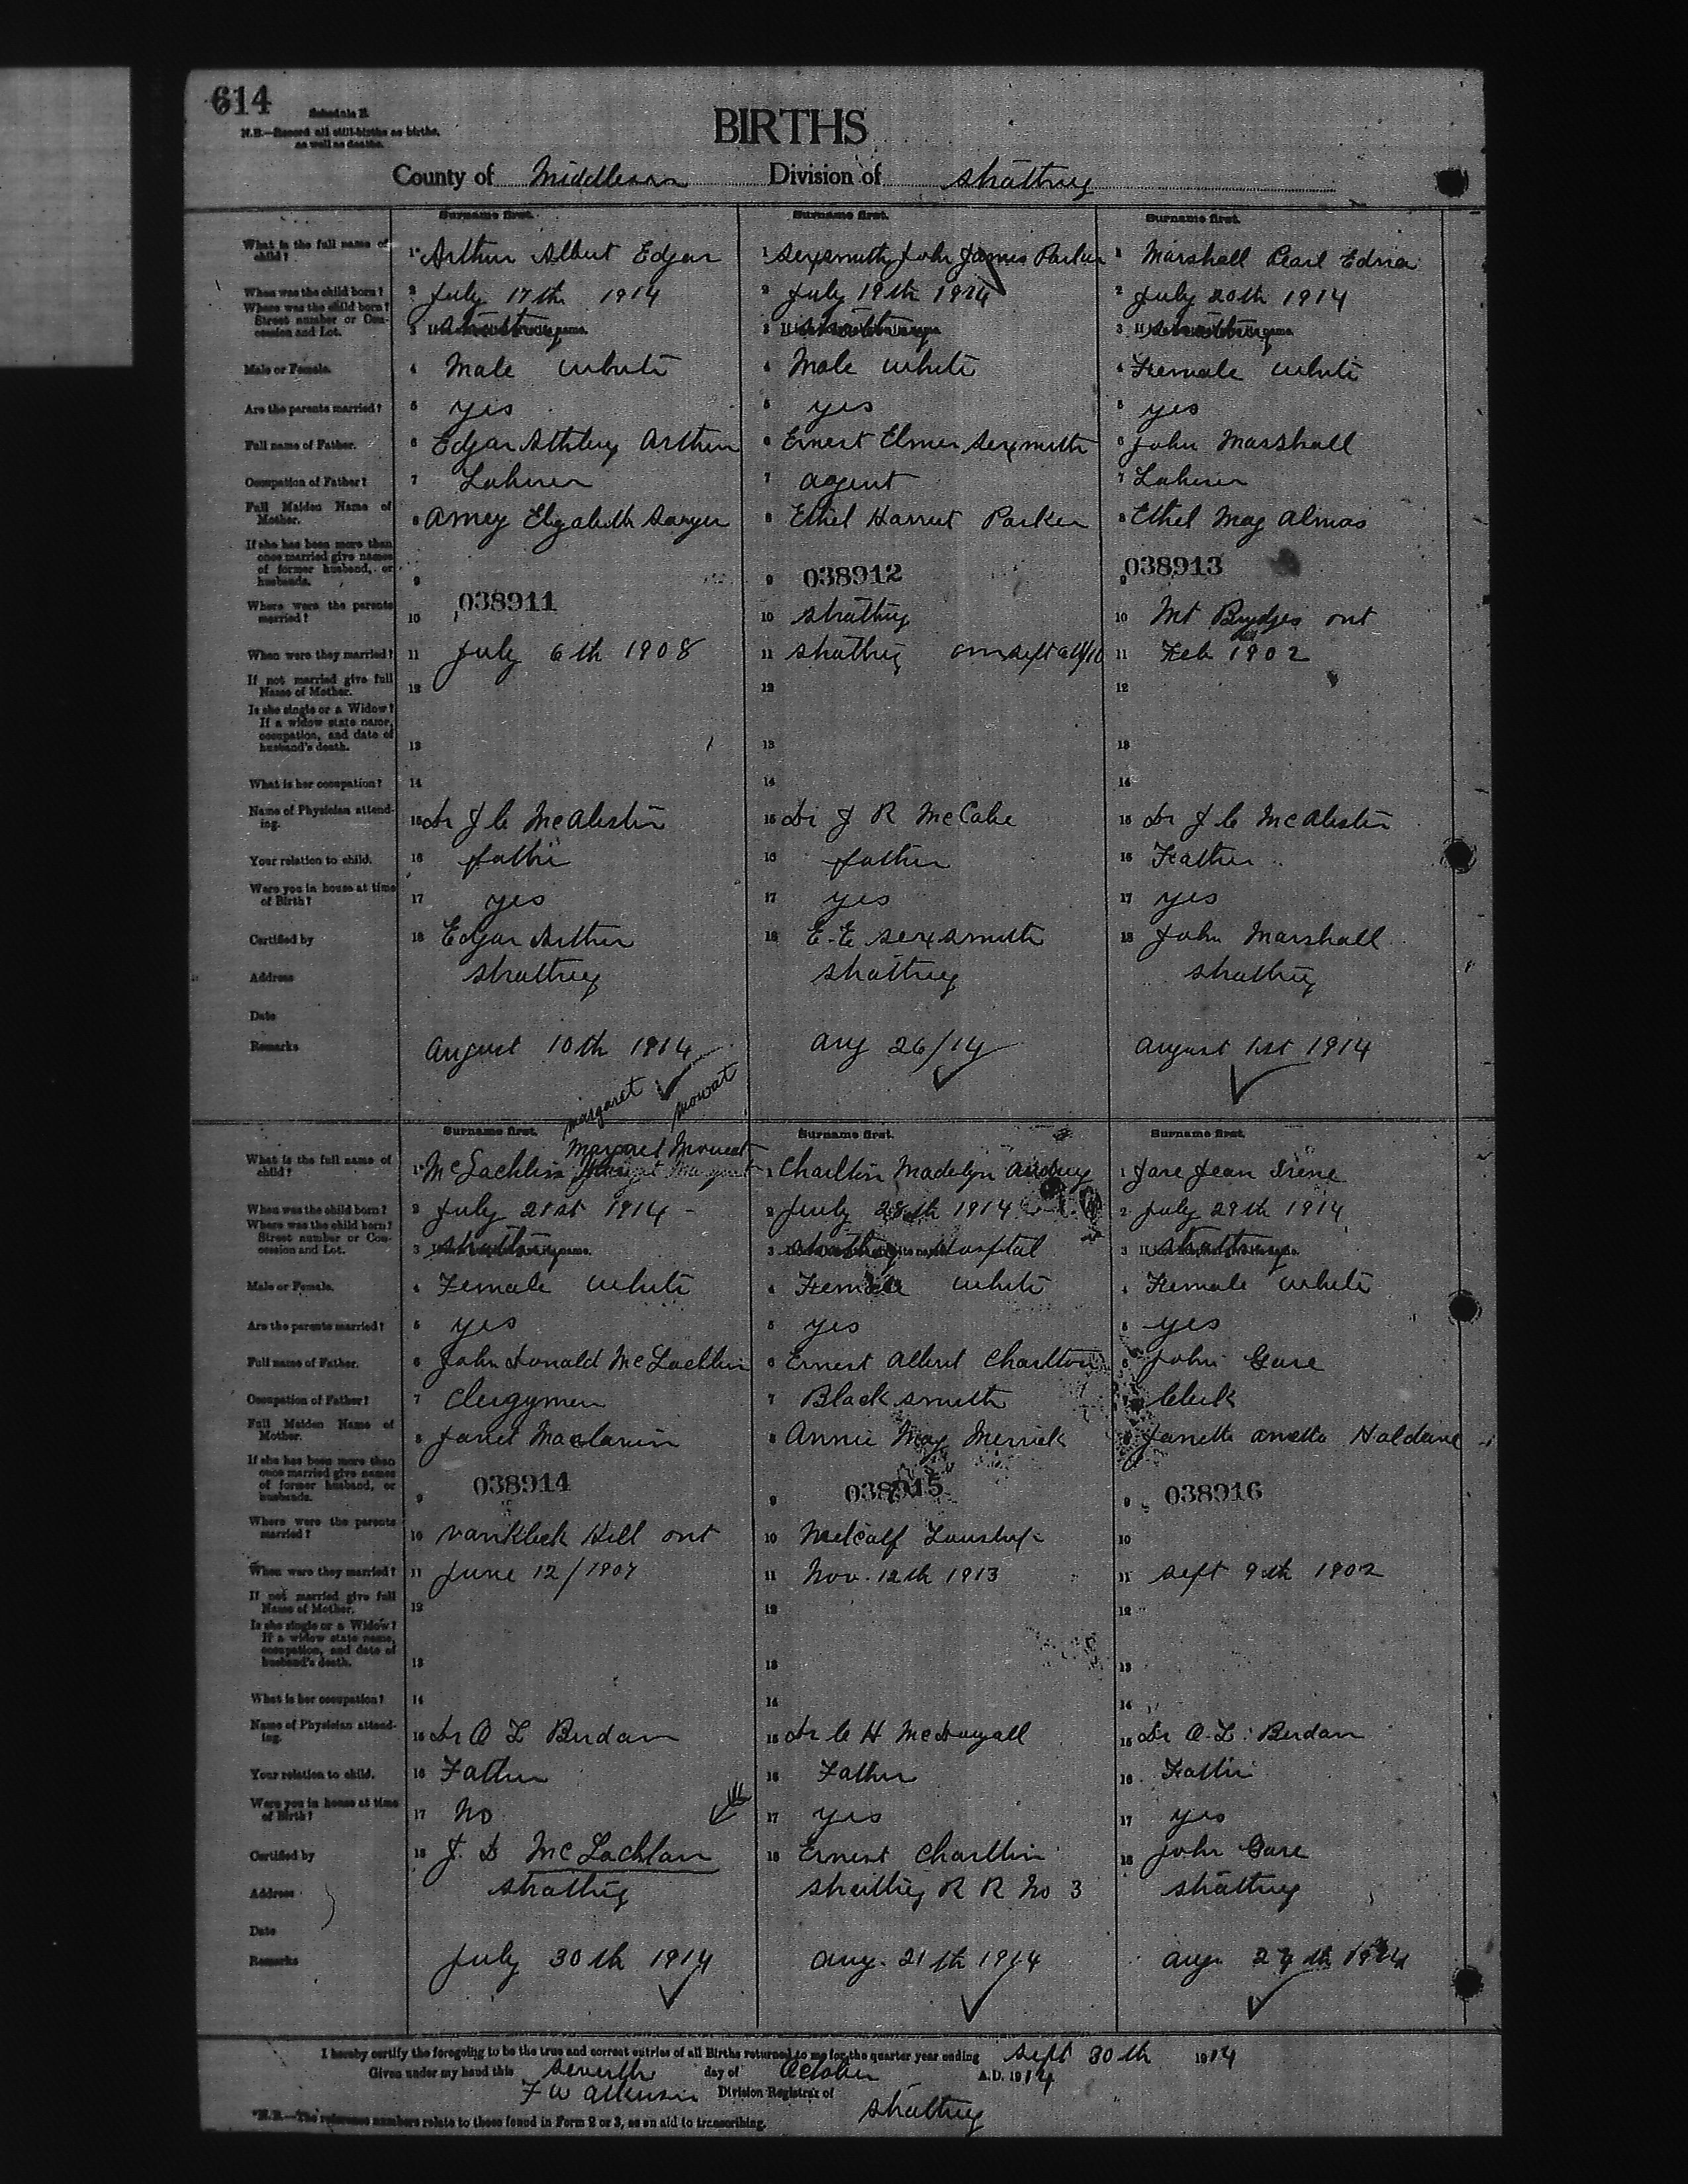 614
Schedule B.
N.B.—Record all still-births as births,
as well as deaths.
BIRTHS
County of Middlesex Division of Strathroy
Surname first. Surname first. Surname first.
What is the full name of child? 1 Arthur Albert Edgar 1 Sexsmith John James Parker 1 Marshall Pearl Edna
When was the child born? 2 July 17th 1914 2 July 19th 1914 2 July 20th 1914
Where was the child born? Street number or Concession and Lot. 3 Strathroy 3 Strathroy 3 Strathroy
Male or Female. 4 Male White 4 Male White 4 Female White
Are the parents married? 5 yes 5 yes 5 yes
Full name of Father. 6 Edgar Arthur 6 Ernest Elmer Sexsmith 6 John Marshall
Occupation of Father? 7 Laborer 7 agent 7 Laborer
Full Maiden Name of Mother. 8 Amey Elizabeth 8 Ethel Harriet Parker 8 Ethel May Almas
If she has been more than once married give names of former husband, or husbands. 9 9 038912 9 038913
Where were the parents married? 10 038911 10 Strathroy 10 Mt Brydges ont
When were they married? 11 July 6th 1908 11 Strathroy 11 Feb 1902
If not married give full Name of Mother. 12 12 12
Is she single or a Widow? If a widow state name, occupation, and date of husband's death. 13 13 13
What is her occupation? 14 14 14
Name of Physician attending. 15 Dr J C McAlister 15 Dr J R McCabe 15 Dr J C McAlister
Your relation to child. 16 father 16 father 16 Father
Were you in house at time of Birth? 17 yes 17 yes 17 yes
Certified by 18 Edgar Arthur 18 E.E Sexsmith 18 John Marshall
Address Strathroy Strathroy Strathroy
Date
Remarks August 10th 1914 Aug 26/14 August 1st 1914
margaret mowat
Surname first. Surname first. Surname first.
Margaret Mowat
What is the full name of child? 1 McLachlin 1 Charlton Madelyn Audrey 1 Jean Irene
When was the child born? 2 July 21st 1914 2 July 28th 1914 2 July 29th 1914
Where was the child born? Street number or Concession and Lot. 3 Strathroy 3 Strathroy Hospital 3 Strathroy
Male or Female. 4 Female White 4 Female White 4 Female White
Are the parents married? 5 yes 5 yes 5 yes
Full name of Father. 6 John Donald McLachlin 6 Ernest Albert Charlton 6 John Gare
Occupation of Father? 7 Clergyman 7 Blacksmith 7 Clerk
Full Maiden Name of Mother. 8 Janet Maclaren 8 Annie May Merrick 8 Janetta Annetta Haldane
If she has been more than once married give names of former husband, or husbands. 9 038914 9 038915 9 038916
Where were the parents married? 10 Vankleek Hill ont 10 Metcalf Township 10
When were they married? 11 June 12/1907 11 Nov. 12th 1913 11 Sept 9th 1902
If not married give full Name of Mother. 12 12 12
Is she single or a Widow? If a widow state name, occupation, and date of husband's death. 13 13 13
What is her occupation? 14 14 14
Name of Physician attending. 15 Dr A L Berdan 15 Dr C H McDugall 15 Dr A.L. Berdan
Your relation to child. 16 Father 16 Father 16 Father
Were you in house at time of Birth? 17 No 17 yes 17 yes
Certified by 18 J. D McLachlan 18 Ernest Charlton 18 John Gare
Address Strathroy Strathroy R R No 3 Strathroy
Date
Remarks July 30th 1914 Aug. 21th 1914 Aug. 1914
I hereby certify the foregoing to be the true and correct entries of all Births returned to me for the quarter year ending Sept 30th 1914
Given under my hand this seventh day of October A.D. 1914
F W Atkinson Division Registrar of Strathroy
*N.B.—The reference numbers relate to those found in Form 2 or 3, as an aid to transcribing.